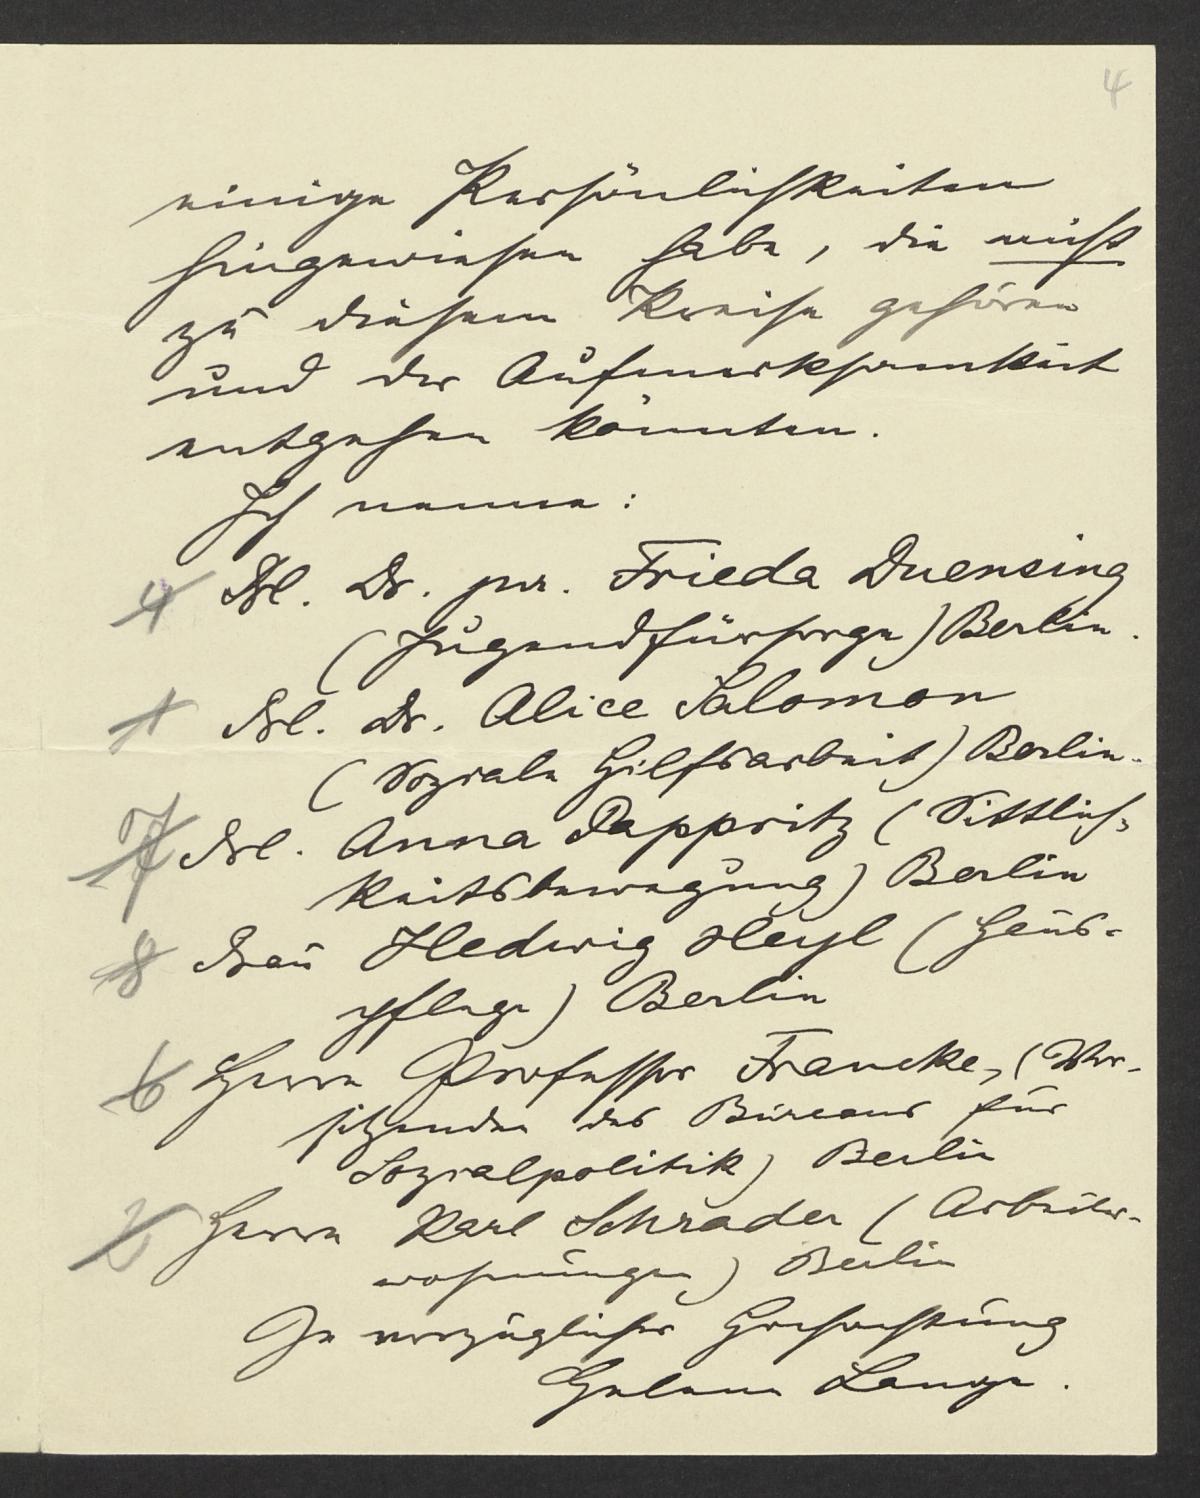 4
einige Persönlichkeiten
hingewiesen habe, die nicht
zu diesem Kreise gehören
und der Aufmerksamkeit
entgehen könnten.
Ich nenne:
4 Frl. Dr. jur. Frieda Duensing
(Jugendfürsorge) Berlin.
1 Frl. Dr. Alice Salomon
(Soziale Hilfsarbeit) Berlin.
7 Frl. Anna Pappritz (Sittlich-
keitsbewegung) Berlin
8 Frau Hedwig Heyl (Haus-
pflege) Berlin
6 Herrn Professor Francke, (Vor-
sitzenden des Bureaus für
Sozialpolitik) Berlin
Herrn Karl Schrader (Arbeiter-
wohnungen) Berlin
In vorzüglicher Hochachtung
Helene Lange.